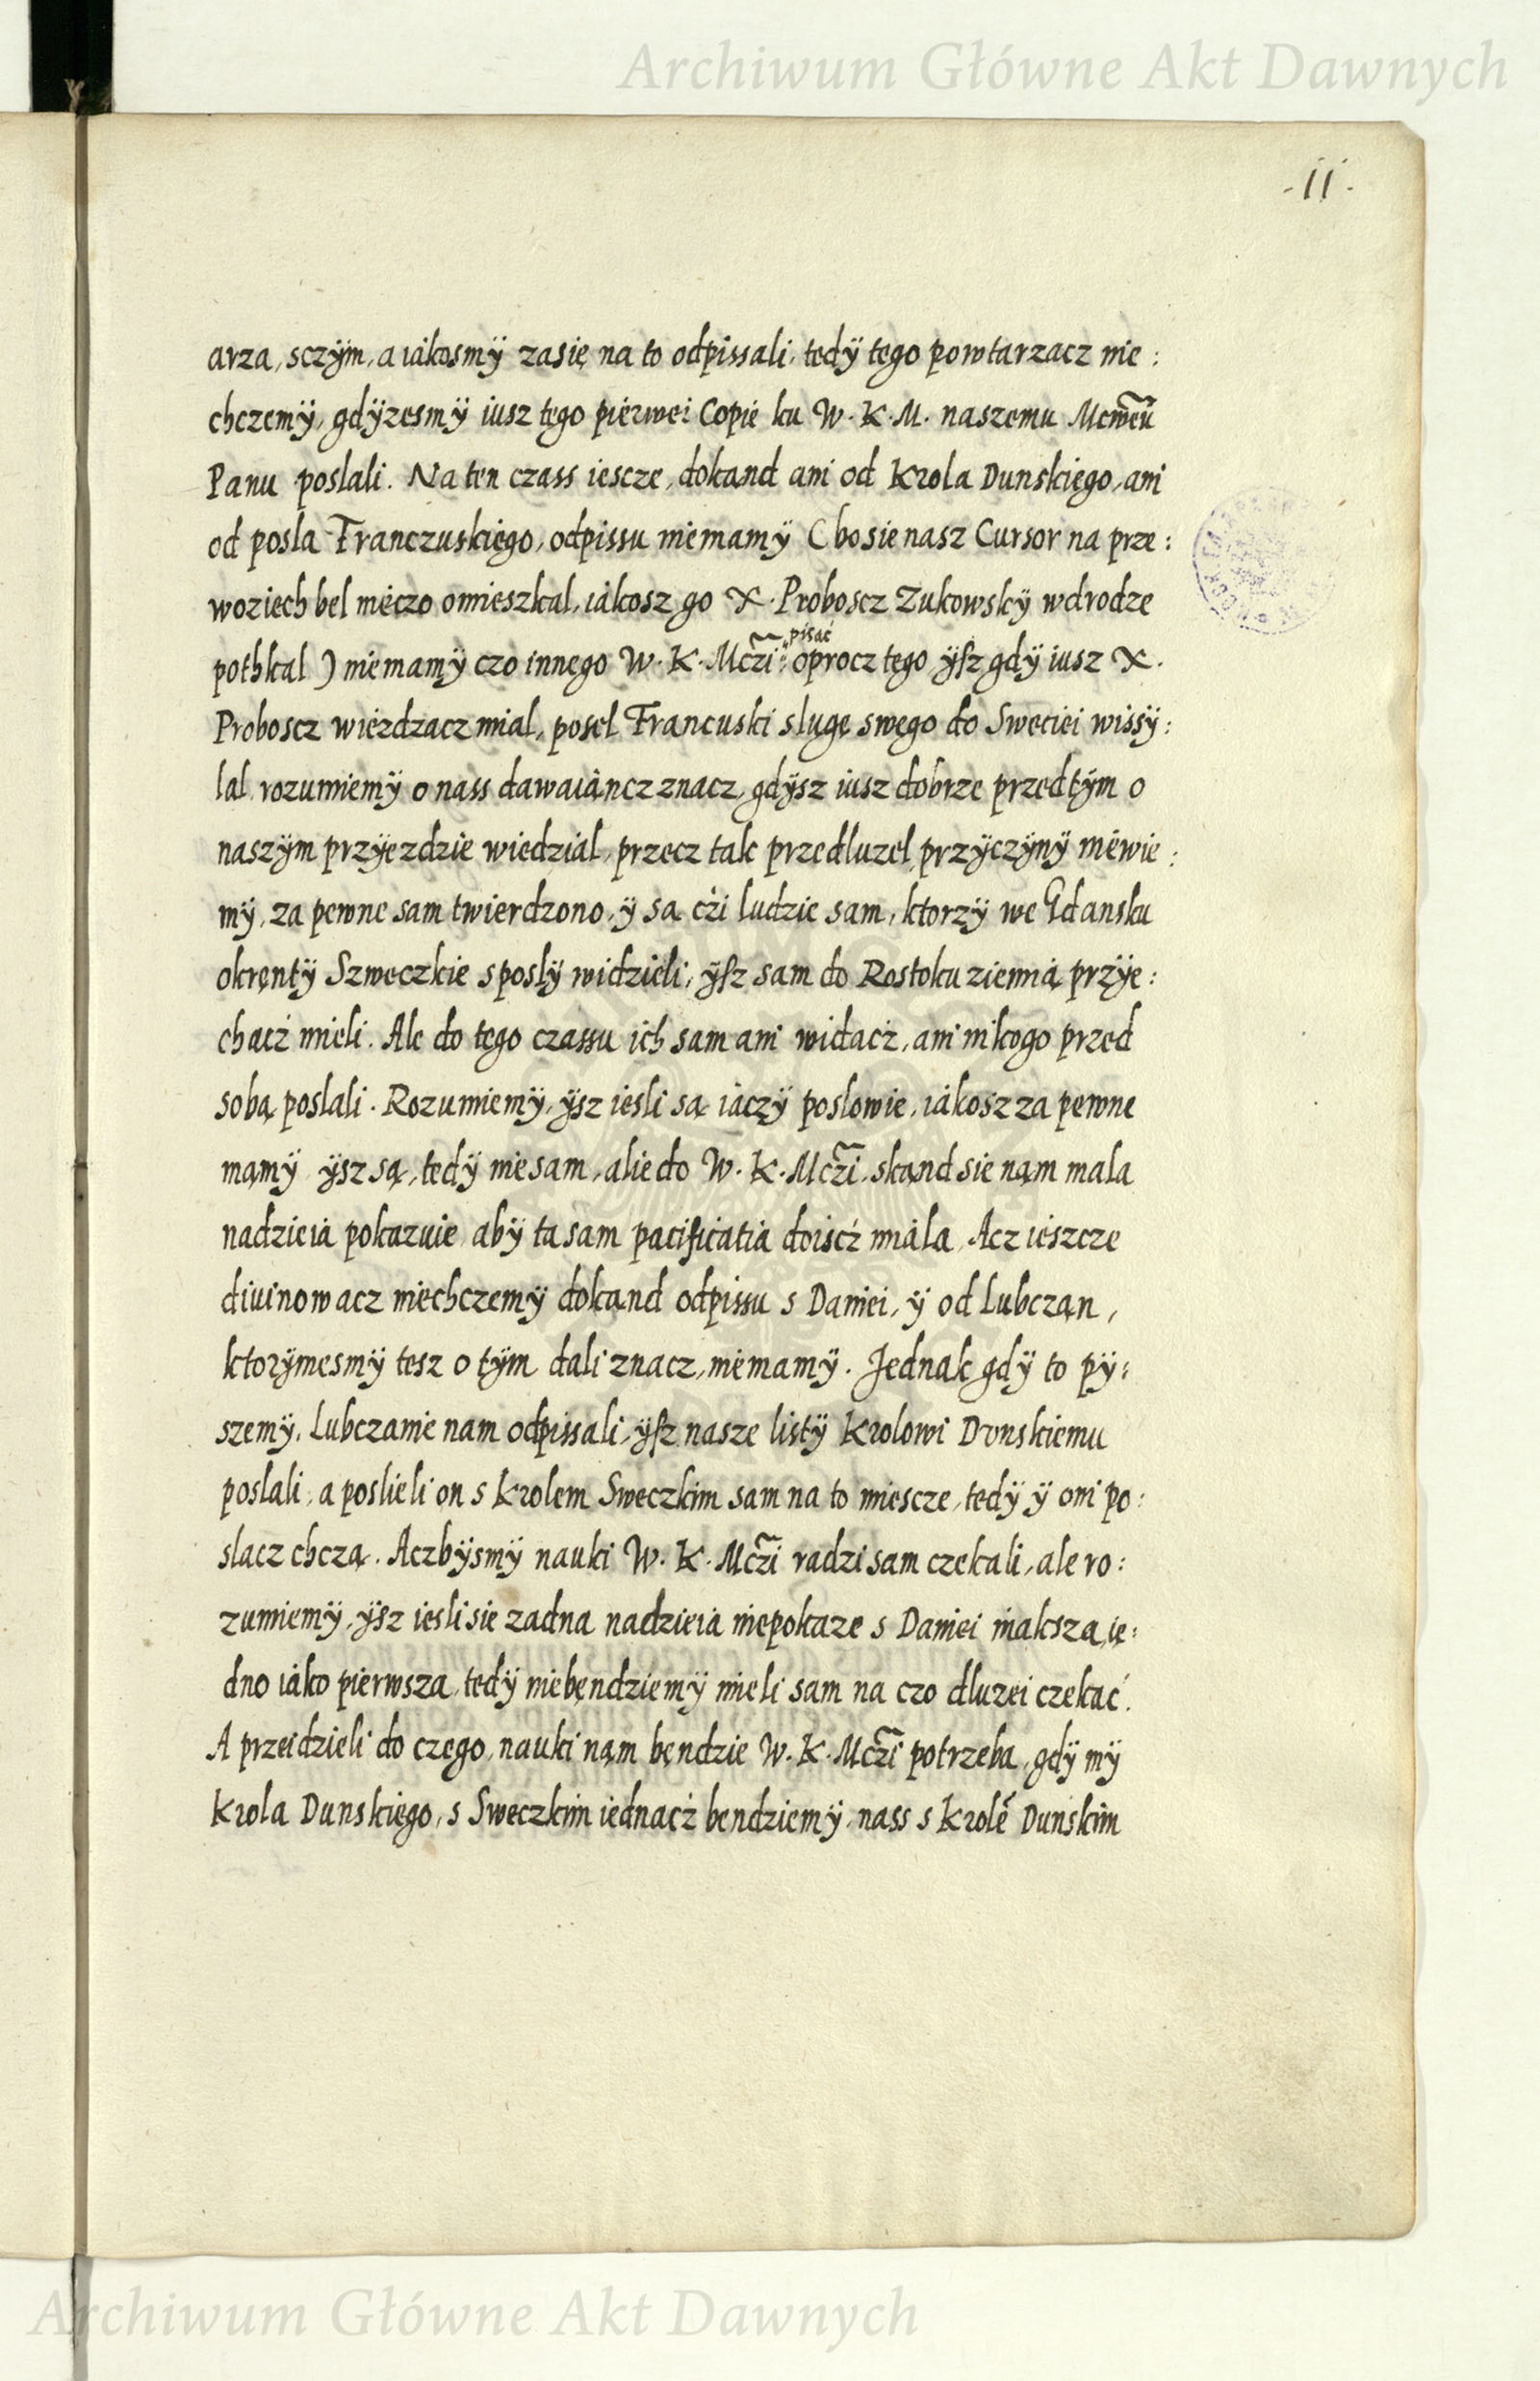 Archiwum Główne Akt Dawnych
-11-
arza, sczÿm, a iakosmÿ zasię na to odpissali, tedÿ tego powtarzacz nie:
chczemÿ, gdÿzesmÿ iusz tego pierwei Copie ku W. K. M. naszemu Mcweu͂
Panu poslali. Na ten czass iescze, dokąnd ani od Krola Dunskiego, ani
od posla Franczuskiego, odpissu niemamÿ ( bo sie nasz Cursor na prze:
woziech bel nieczo omieszkal, iakosz go X. Proboscz Zukowskÿ wdrodze
pothkal ) niemamÿ czo innego W. K. Mc͂zi pisać oprocz tego ÿsz gdÿ iusz X.
Proboscz wiezdzacz mial, posel Francuski slugę swego do Sweciei wissÿ:
lal rozumiemÿ o nass dawaiąncz znacz, gdÿsz iusz dobrze przedtÿm o
naszÿm przÿezdzie wiedzial, przecz tak przedluzel przÿczÿnÿ niewie:
mÿ, za pewne sam twierdzono, ÿ są czi ludzie sam, ktorzÿ we Gdansku
okręntÿ Szweczkie sposlÿ widzieli, ÿsz sam do Rostoku ziemią przÿe:
chacż mieli. Ale do tego czassu ich sam ani widacż, ani nikogo przed
sobą poslali. Rozumiemÿ, ÿsz iesli są iaczÿ poslowie, iakosz za pewne
mąmÿ ÿsz są, tedÿ niesam, alie do W. K. Mc͂zi, skąnd sie nąm mala
nadzieia pokazuie abÿ ta sam pacificatia doiscż miala. Acz ieszcze
diuinowacz niechczemÿ dokąnd odpissu s Daniei, ÿ od Lubczan,
ktorÿmesmÿ tesz o tÿm dali znacz, niemamÿ. Jednak gdÿ to pÿ:
szemÿ, Lubczanie nam odpissali, ÿsz nasze listÿ Krolowi Dvnskiemu
poslali, a poslieli on s Krolem Sweczkim sam na to miescze, tedÿ ÿ oni po:
slacz chczą. Aczbÿsmÿ nauki W. K. Mc͂zi radzi sam czekali, ale ro:
zumiemÿ, ÿsz iesli sie zadna nadzieia niepokaze s Daniei inaksza, ie:
dno iako pierwsza, tedÿ niebęndziemÿ mieli sam na czo dluzei czekać.
A przeidzieli do czego, nauki nąm będzie W. K. Mc͂zi potrzeba, gdÿ mÿ
Krola Dunskiego, s Sweczkim iednacż bendziemÿ, nass s Krolē Dunskim
Archiwum Główne Akt Dawnych